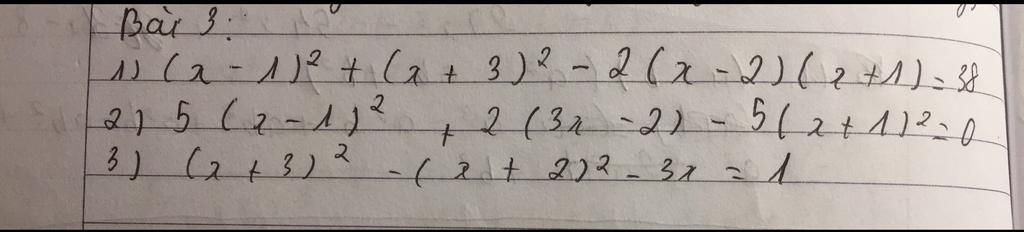 Bài 3:
1) (x - 1)² + (x + 3)² - 2(x - 2)(x + 1) = 38
2) 5 (x - 1)² + 2 (3x - 2) - 5(x + 1)² = 0
3) (x + 3)² - (x + 2)² - 3x = 1